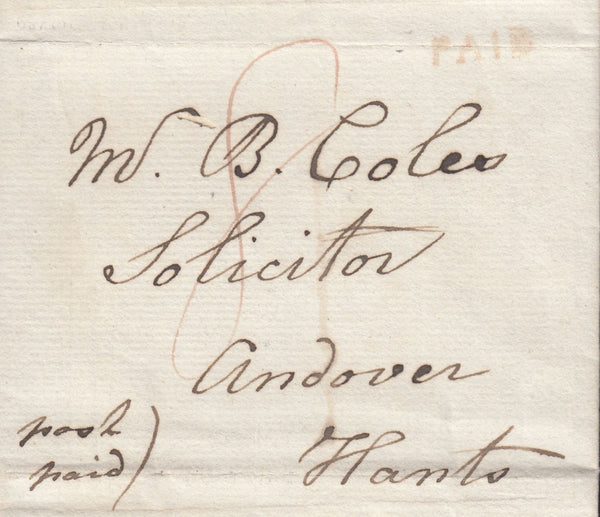 PAID
8
Mr. B. Coles
Solicitor
Andover
Hants
post
paid)